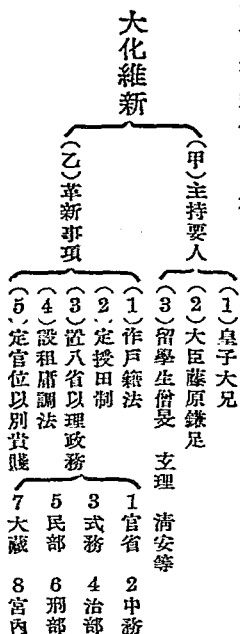 大化維新
(甲)主持要人
(1)皇子大兄
(2)大臣藤原鎌足
(3)留學生僧旻 玄理 淸安等
(乙)革新事項
(1)作戶籍法
(2)定授田制
(3)置八省以理政務
1官省 2中務
3式務 4治部
5民部 6刑部
7大蔵 8宮內
(4)設租庸調法
(5)定官位以別貴賤